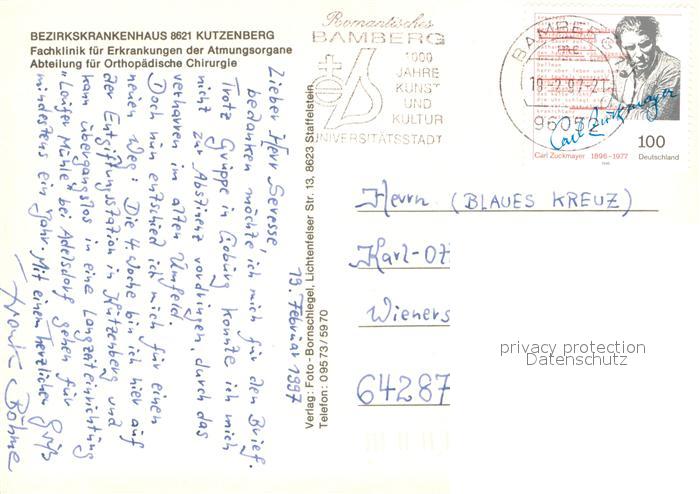 BEZIRKSKRANKENHAUS 8621 KUTZENBERG
Fachklinik für Erkrankungen der Atmungsorgane
Abteilung für Orthopädische Chirurgie
Lieber Herr Seresse,
bedanken möchte ich mich für den Brief.
Trotz Gruppe in Coburg konnte ich mich
nicht zur Abstinenz vordringen, durch das
verharren im alten Umfeld.
Doch nun entschied ich mich für einen
neuen Weg: Die 4. Woche bin ich hier auf
der Entgiftungsstation in Kutzenberg und
kann übergangslos in eine Langzeiteinrichtung
"Laufer Mühle" bei Adelsdorf gehen für
mindestens ein Jahr. Mit einem herzlichen Gruß
Frank Böhme
19. Februar 1997
Verlag: Foto-Bornschlegel, Lichtenfelser Str. 13, 8623 Staffelstein
Telefon: 09573/5970
Romantisches
BAMBERG
1000
JAHRE
KUNST
UND
KULTUR
UNIVERSITÄTSSTADT
BAMBERG
mc
19.-2.97-21
96052
Carl Zuckmayer
Carl Zuckmayer 1896-1977
100
Deutschland
Herrn (BLAUES KREUZ)
Karl-Ot
Wieners
64287
privacy protection
Datenschutz